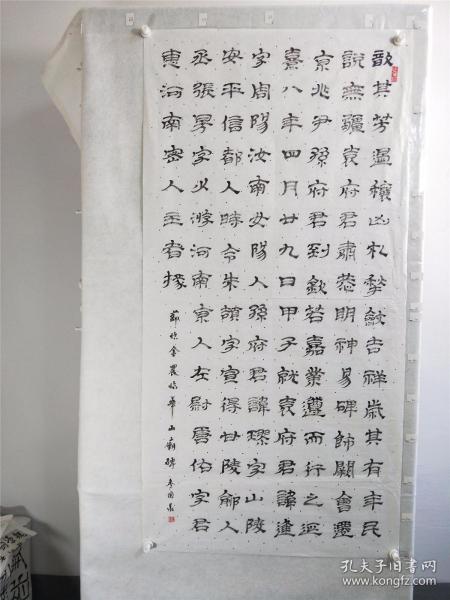 歆其芳遏穰凶札揫斂吉祥歲其有年民
說無疆袁府君肅恭明神易碑飾闕會遷
京兆尹孫府君到欽若嘉業遵而行之延
熹八年四月廿九日甲子就袁府君諱逢
字周陽汝南女陽人孫府君諱璆字山陵
安平信都人時令朱頡字宣得甘陵鄃人
丞張昉字少游河南京人左尉唐佑字君
惠河南密人主者掾
節臨金農臨華山廟碑
孔夫子旧书网
www.kongfz.com